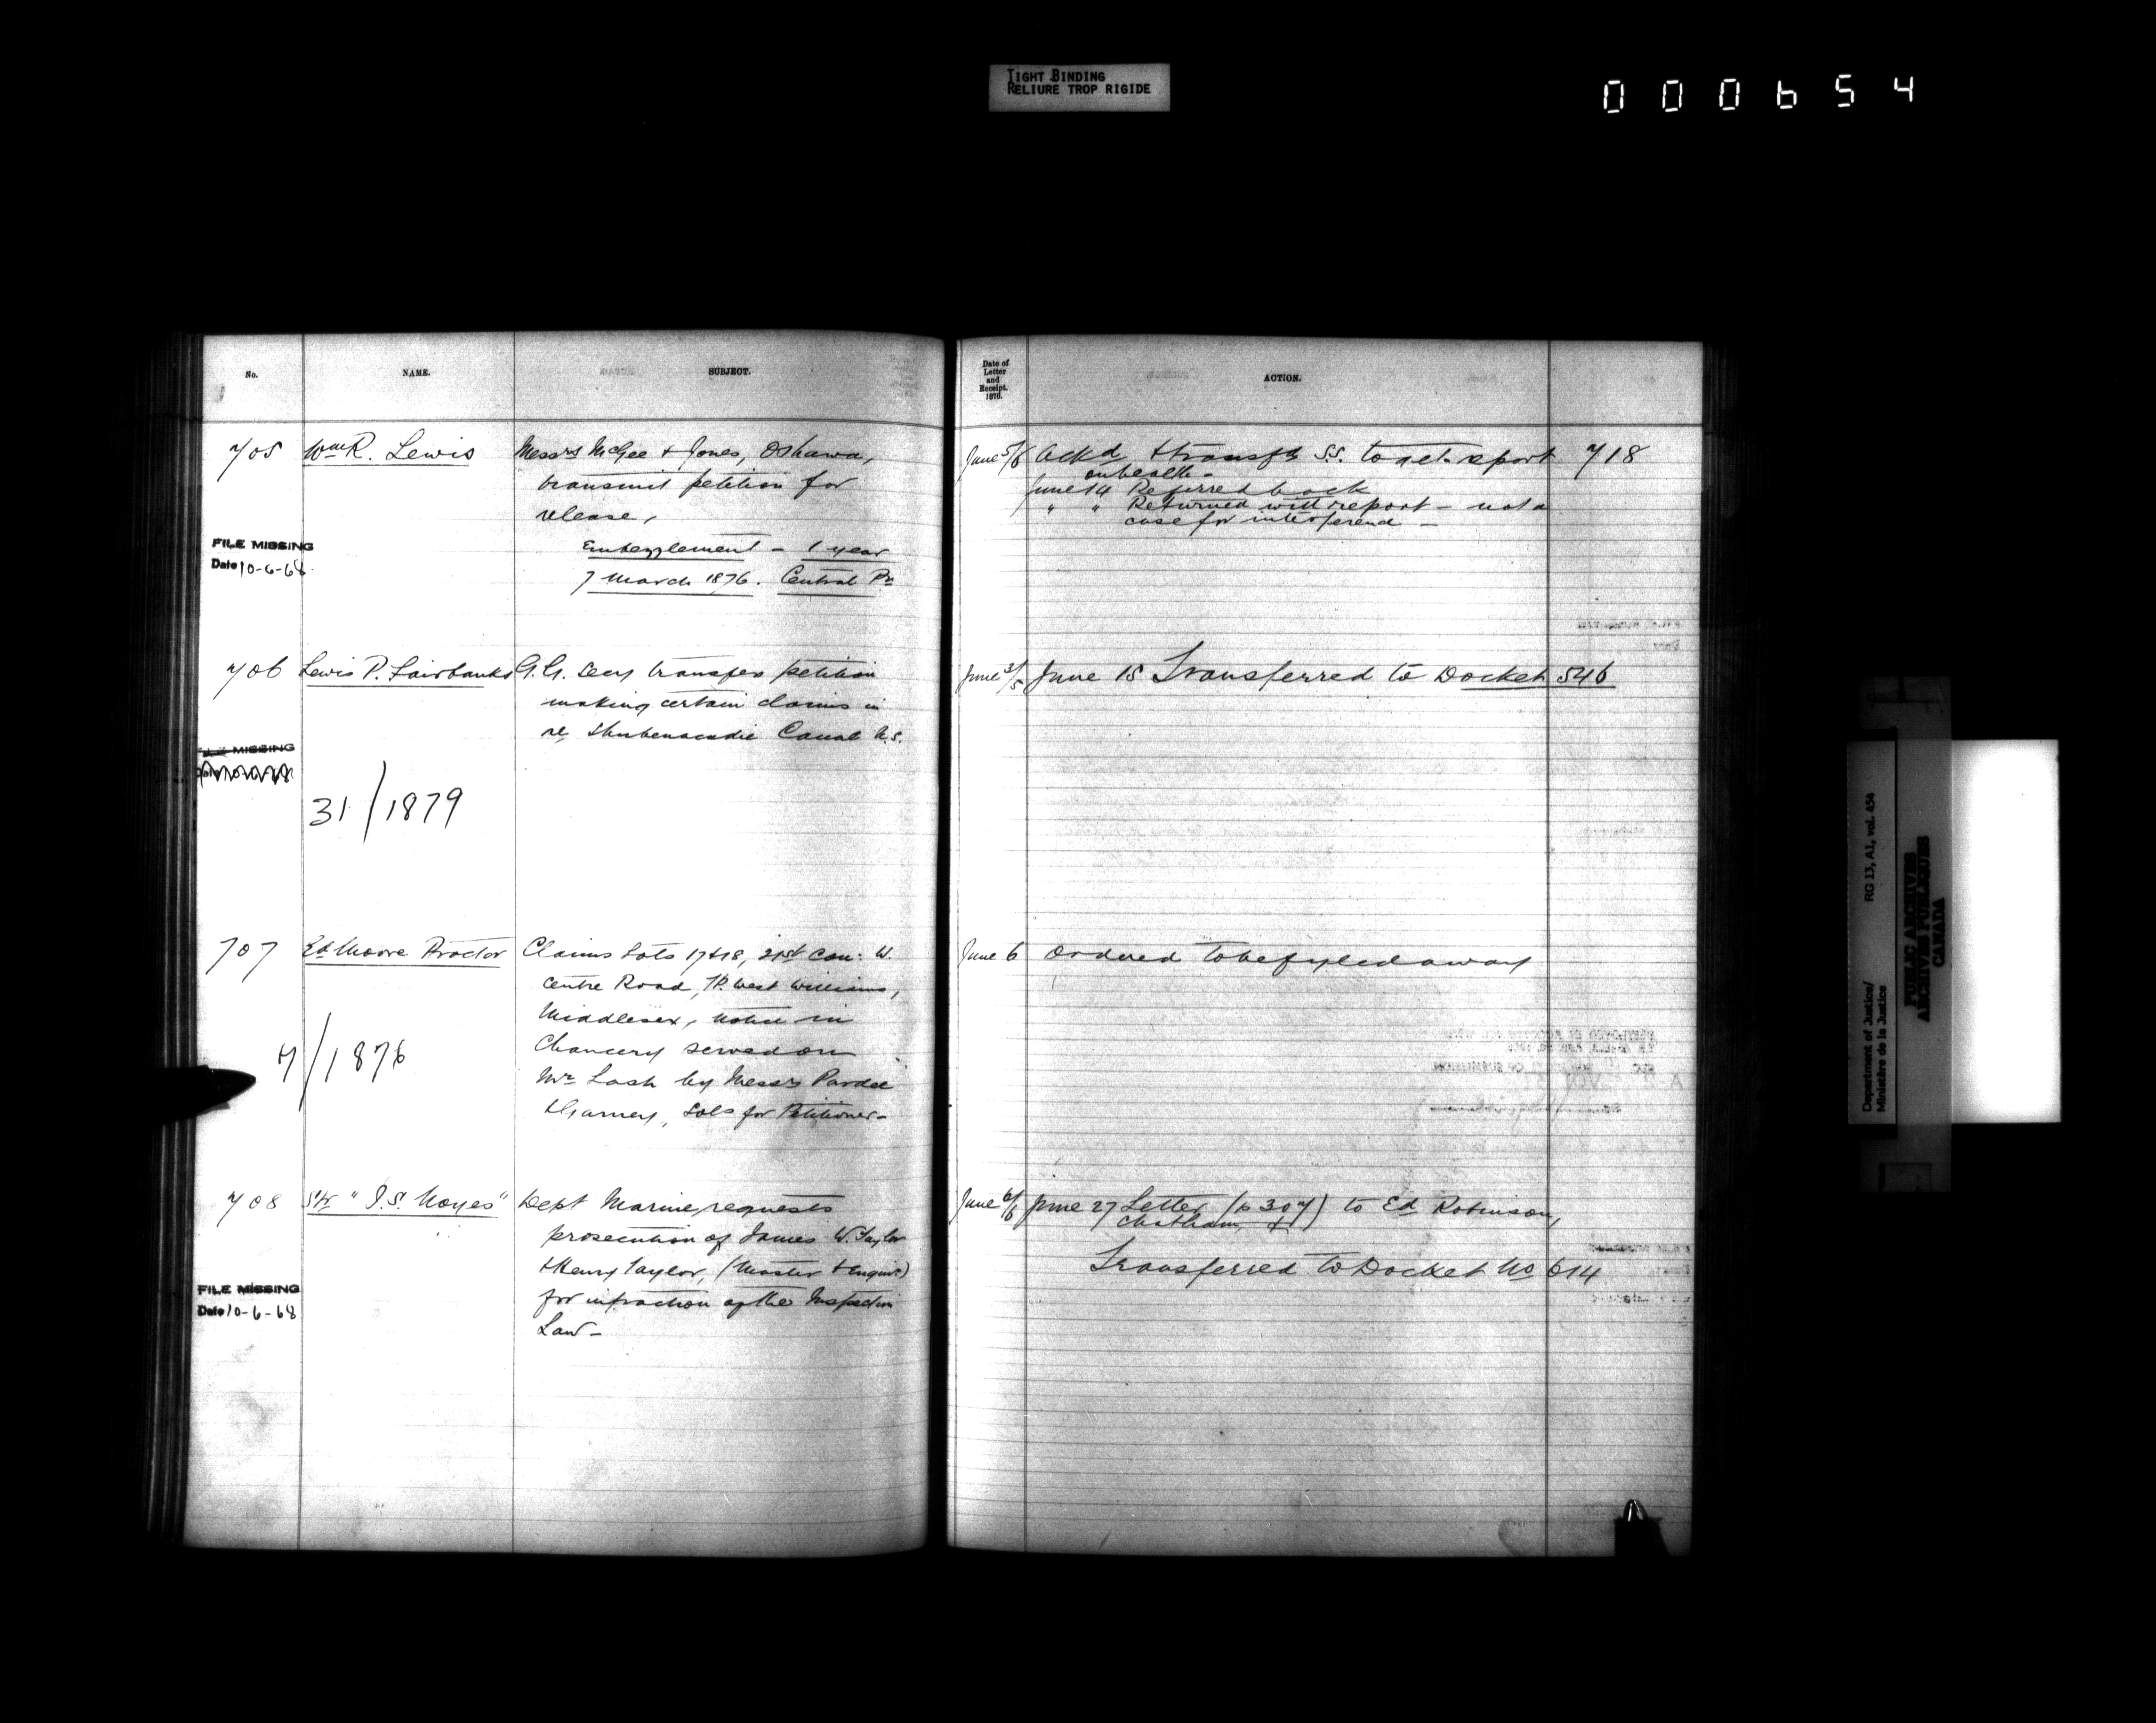 TIGHT BINDING
RELIURE TROP RIGIDE
000654
No.
NAME.
SUBJECT.
Date of
Letter
and
Receipt.
1876.
ACTION.
705
Wm R. Lewis
Messrs McGee & Jones, Oshawa,
transmit petition for
release,
Embezzlement - 1 year
7 March 1876. Central Pn
FILE MISSING
Date 10-6-68
June 5/6
Ackd & transfd S.S. to get report
on health -
June 14 Referred back
" " Returned with report - not a
case for interference -
718
706
Lewis P. Fairbanks
G.G. Secy transfers petition
making certain claims in
re Shubenacadie Canal N.S.
FILE MISSING
31/1879
June 3/5
June 15 Transferred to Docket 546
707
Ed Moore Proctor
Claims Lots 17 & 18, 21st Con: W.
Centre Road, Tp. West Williams,
Middlesex, notice in
Chancery served on
Mr Lash by Messrs Pardee
& Garvey, Sols for Petitioner -
7/1876
June 6
Ordered to be fyled away
708
Str "J.S. Noyes"
Dept Marine, requests
prosecution of James W. Taylor
& Henry Taylor, (Master & Enginr)
for infraction of the Inspection
Law -
FILE MISSING
Date 10-6-68
June 6/6
June 27 Letter (p 307) to Ed Robinson,
Chatham,
Transferred to Docket No 614
Department of Justice/
Ministère de la Justice
RG 13, A1, vol. 454
PUBLIC ARCHIVES
ARCHIVES PUBLIQUES
CANADA